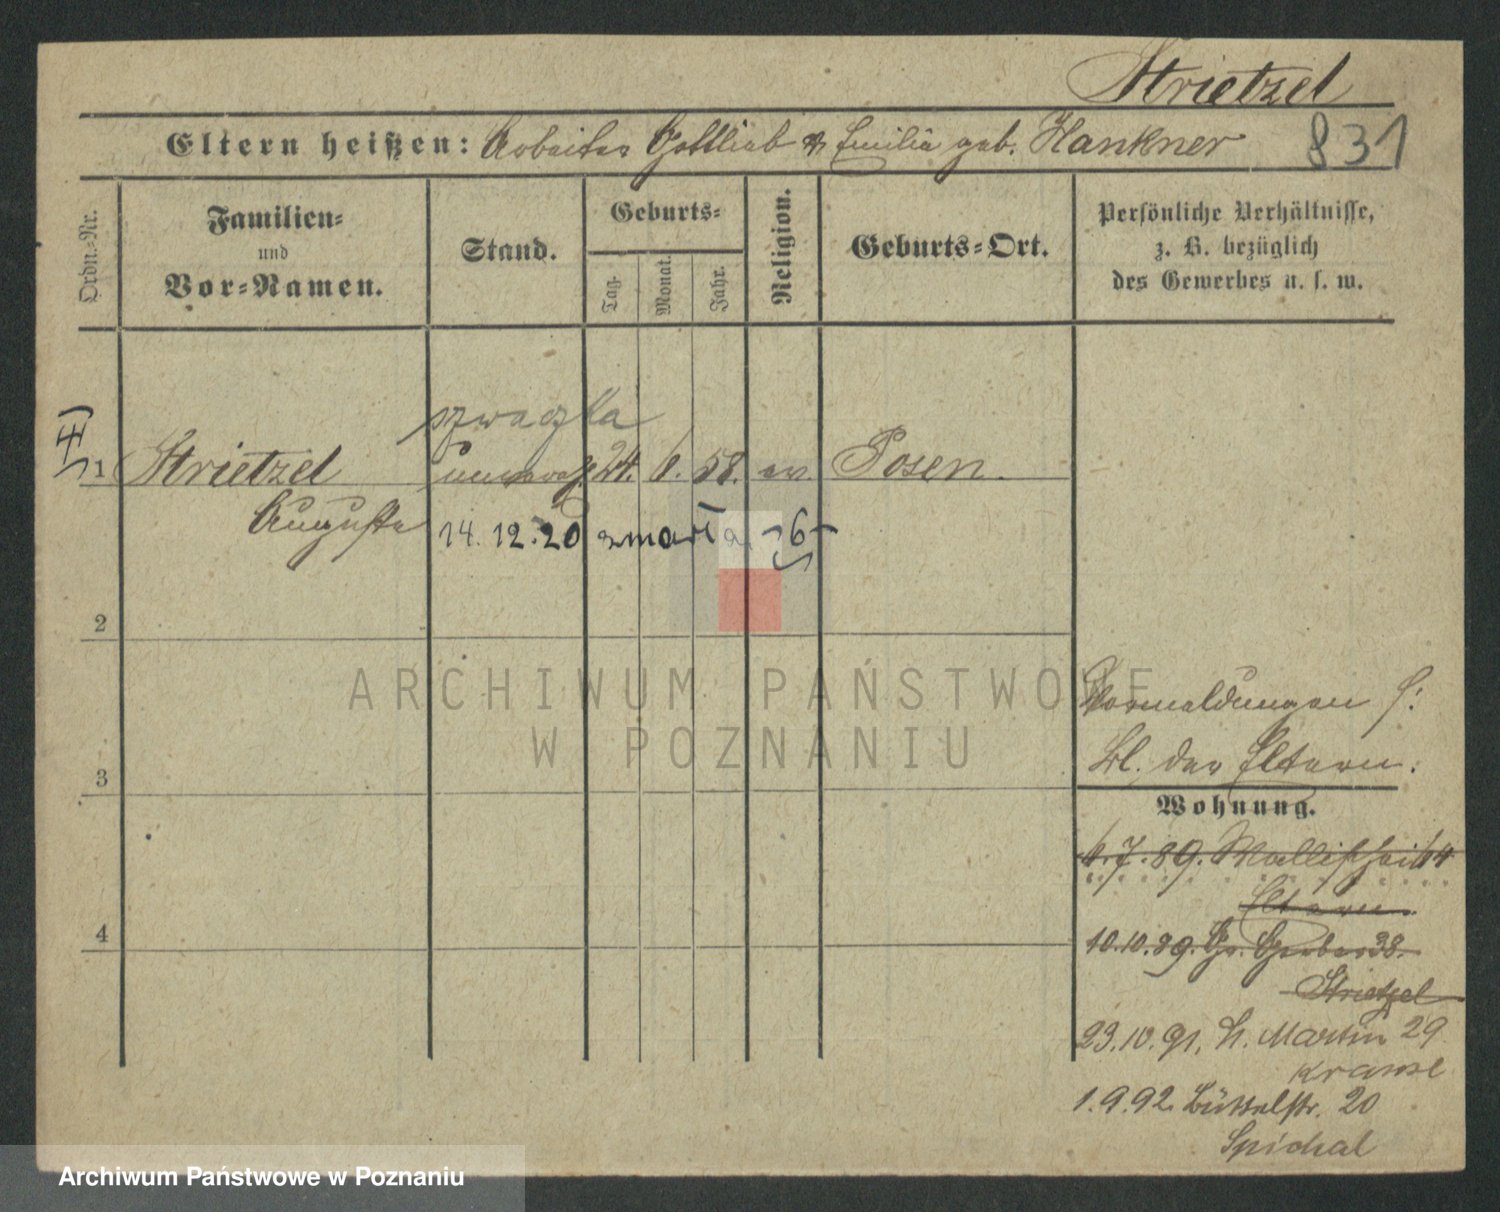 Strietzel
Eltern heißen: Arbeiter Gottlieb & Emilie geb. Hankner
831
Ordn.-Nr.
Familien-
und
Vor-Namen.
Stand.
Geburts-
Tag.
Monat.
Jahr.
Religion.
Geburts-Ort.
Persönliche Verhältnisse,
z. B. bezüglich
des Gewerbes u. s. w.
szwaczka
1 Strietzel unvereh. 24. 6. 58. ev. Posen.
Auguste
14.12.20 zmarła
2
3
4
Vormeldungen s:
Bl. der Eltern.
Wohnung.
6.7.89. Wallischei 64
Eltern
10.10.89. Gr. Gerber 38.
Strietzel
23.10.91. St. Martin 29
Krause
1.9.92. Büttelstr. 20
Spichal
ARCHIWUM PAŃSTWOWE
W POZNANIU
Archiwum Państwowe w Poznaniu